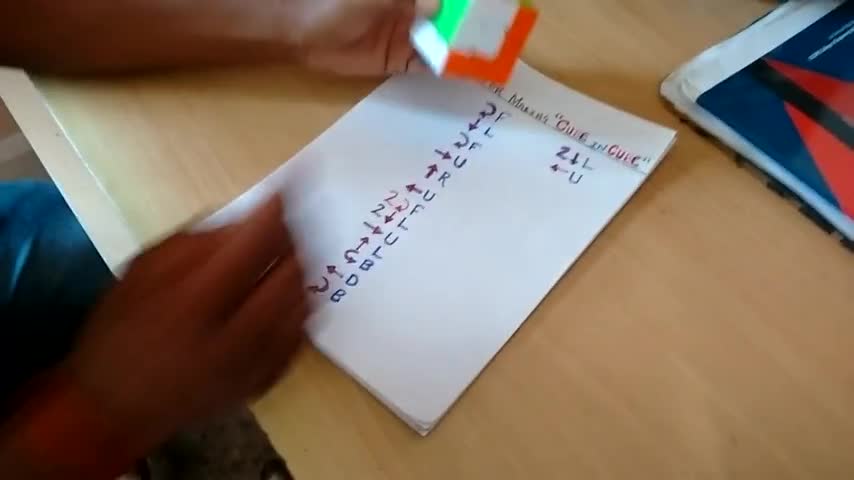 MAKING "CUBE IN CUBE"
F
L
F
→ U
↑ R
← U
2 F
2↓ L
→ U
↑ L
B
← D
B
2↓ L
← U